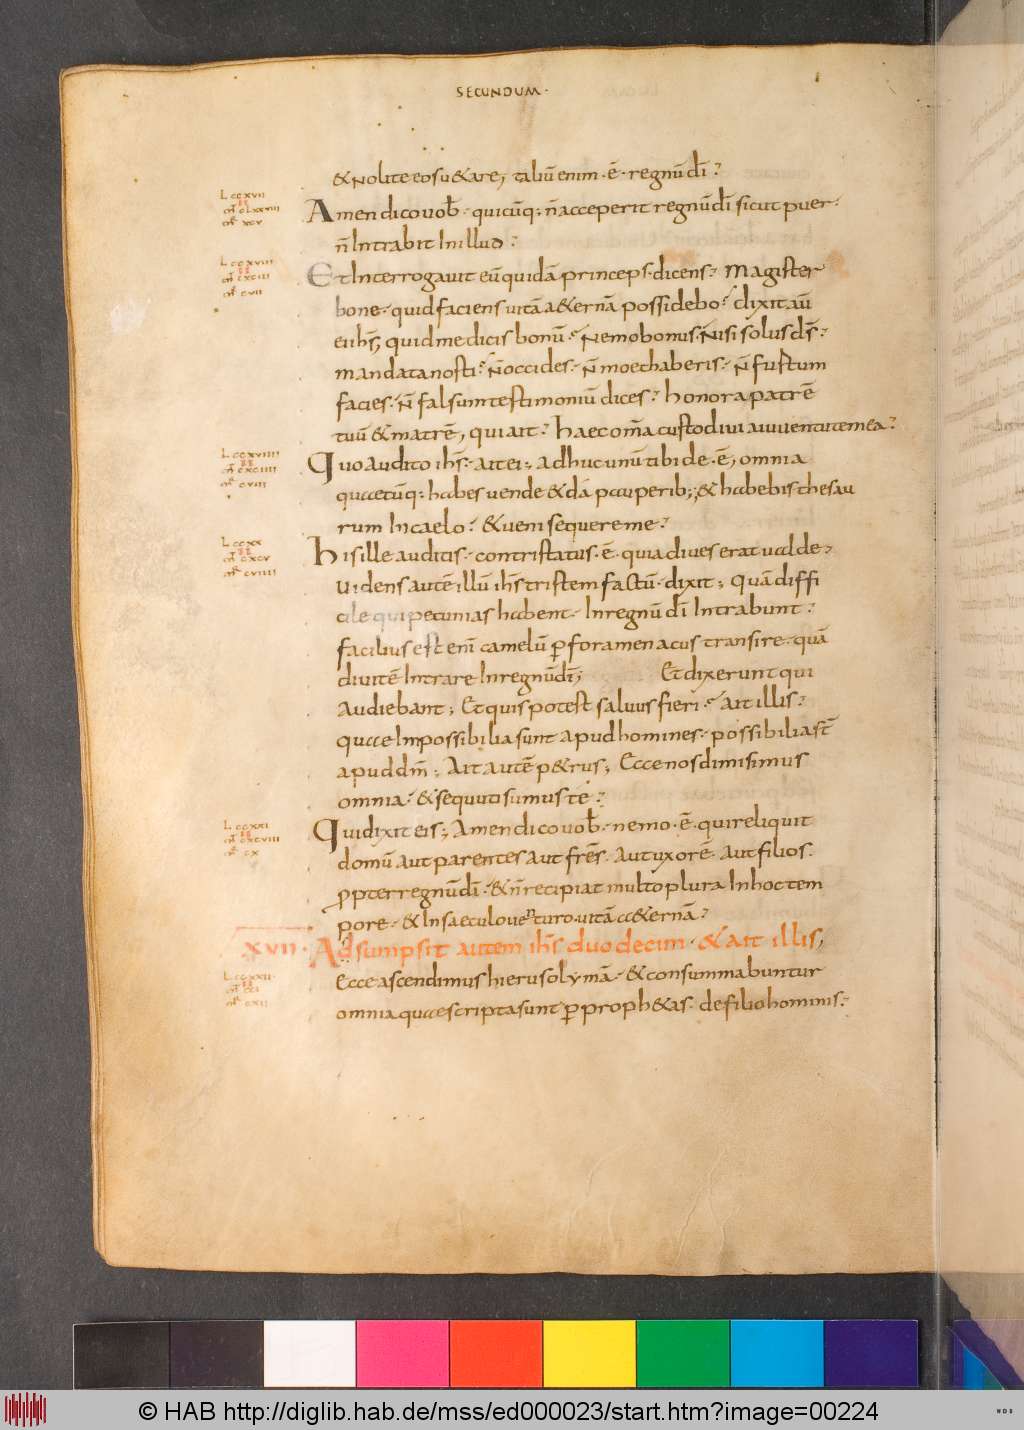 SECUNDUM·
& nolite eos u&are; taliū enim · ē · regnū dī ?
L ccxvii
m̄ clxxviiii
m̄ xcv
Amen dico vob̄ · quicūq; n̄ acceperit regnū dī sicut puer·
n̄ Intrabit In illud ?
L ccxviii
m̄ cxciii
m̄ cvii
Et Interrogavit eū quidā princeps · dicens ? Magister
bone · quid faciens vitā a&ernā possidebo ? dixit aū
ei ihs̄; quid me dicis bonū ? Nemo bonus · Nisi solus ds̄ ?
mandata nosti ? N̄ occides · N̄ moechaberis · N̄ furtum
facies · N̄ falsum testimoniū dices ? honora patrē
tuū & matrē; qui ait ? haec om̄a custodivi a iuventute mea ?
L ccxviiii
m̄ cxciiii
m̄ cviii
Quo audito ihs̄ · ait ei ; adhuc unū tibi de · ē; omnia
quaecūq; habes vende & dā pauperib; ; & habebis thesau
rum In caelo ? & veni sequere me ?
L ccxx
m̄ cxcv
m̄ cviiii
His ille auditis · contristatus · ē · quia dives erat valde ?
Videns autē illū ihs̄ tristem factū · dixit ; Quā diffi
cile qui pecunias habent · In regnū dī Intrabunt ?
facilius est enī camelū ꝑ foramen acus transire · quā
divitē Intrare In regnū dī; Et dixerunt qui
Audiebant ; Et quis potest salvus fieri ? Ait illis ?
quae Impossibilia sunt apud homines · possibilia st̄
apud dm̄ ; Ait autē p&rus ; Ecce nos dimisimus
omnia ? & sequuti sumus te ?
L ccxxi
m̄ cxcviii
m̄ cx
Qui dixit eis ; Amen dico vob̄ · nemo · ē · qui reliquit
domū aut parentes aut frēs · aut uxorē · aut filios ·
ꝓpter regnū dī · & n̄ recipiat multo plura In hoc tem
pore · & In saeculo venturo · vitā ae&ernā ?
·xvii· Adsumpsit autem ihs̄ duodecim · & ait illis;
L ccxxii
m̄ cci
m̄ cxii
Ecce ascendimus hierusolymā · & consummabuntur
omnia quae scripta sunt ꝑ proph&as · de filio hominis ?
© HAB http://diglib.hab.de/mss/ed000023/start.htm?image=00224
WDB